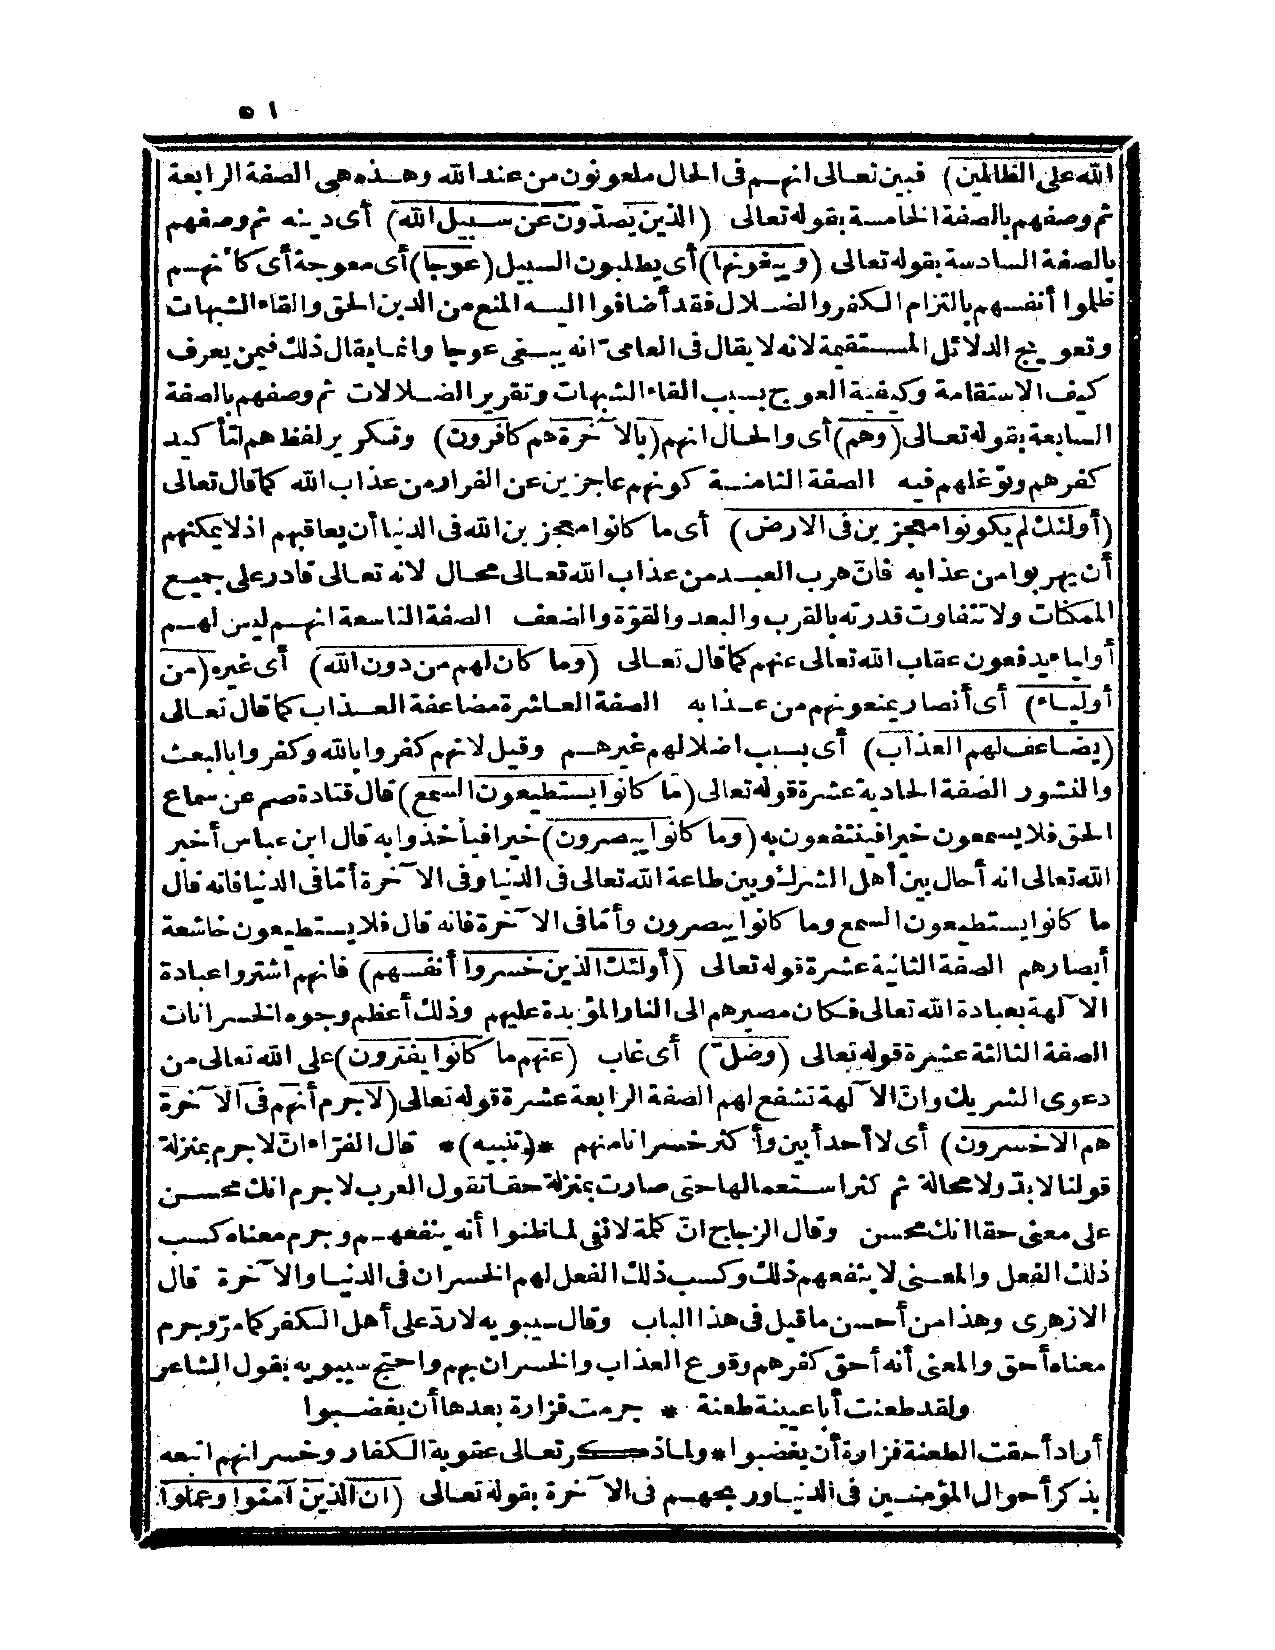 ٥١
الله على الظالمين) فبين تعالى انهم فى الحال ملعونون من عند الله وهذه هى الصفة الرابعة
ثم وصفهم بالصفة الخامسة بقوله تعالى (الذين يصدّون عن سبيل الله) أى دينه ثم وصفهم
بالصفة السادسة بقوله تعالى (ويبغونها) أى يطلبون السبيل (عوجا) أى معوجة أى كا نهم
ظلموا أنفسهم بالتزام الكفر والضلال فقد أضافوا اليه المنع من الدين الحق والقاء الشبهات
وتعويج الدلائل المستقيمة لانه لا يقال فى العامىّ انه يبغى عوجا وانما يقال ذلك فيمن يعرف
كيف الاستقامة وكيفية العوج بسبب القاء الشبهات وتقرير الضلالات ثم وصفهم بالصفة
السابعة بقوله تعالى (وهم) أى والحال انهم (بالآخرة هم كافرون) وتكرير لفظ هم لتأكيد
كفرهم وتوغلهم فيه الصفة الثامنة كونهم عاجزين عن الفرار من عذاب الله كما قال تعالى
(أولئك لم يكونوا معجزين فى الارض) أى ما كانوا معجزين الله فى الدنيا أن يعاقبهم اذ لا يمكنهم
أن يهربوا من عذابه فانّ هرب العبد من عذاب الله تعالى محال لانه تعالى قادر على جميع
الممكنات ولا تتفاوت قدرته بالقرب والبعد والقوّة والضعف الصفة التاسعة انهم ليس لهم
أولياء يدفعون عقاب الله تعالى عنهم كما قال تعالى (وما كان لهم من دون الله) أى غيره (من
أولياء) أى أنصار يمنعونهم من عذابه الصفة العاشرة مضاعفة العذاب كما قال تعالى
(يضاعف لهم العذاب) أى بسبب اضلالهم غيرهم وقيل لانهم كفروا بالله وكفروا بالبعث
والنشور الصفة الحادية عشرة قوله تعالى (ما كانوا يستطيعون السمع) قال قتادة صم عن سماع
الحق فلا يسمعون خيرا فينتفعون به (وما كانوا يبصرون) خيرا فيأخذوا به قال ابن عباس أخبر
الله تعالى انه أحال بين أهل الشرك وبين طاعة الله تعالى فى الدنيا وفى الآخرة أمّا فى الدنيا فانه قال
ما كانوا يستطيعون السمع وما كانوا يبصرون وأمّا فى الآخرة فانه قال فلا يستطيعون خاشعة
أبصارهم الصفة الثانية عشرة قوله تعالى (أولئك الذين خسروا أنفسهم) فانهم اشتروا عبادة
الآلهة بعبادة الله تعالى فكان مصيرهم الى النار المؤبدة عليهم وذلك أعظم وجوه الخسرانات
الصفة الثالثة عشرة قوله تعالى (وضلّ) أى غاب (عنهم ما كانوا يفترون) على الله تعالى من
دعوى الشريك وانّ الآلهة تشفع لهم الصفة الرابعة عشرة قوله تعالى (لا جرم أنهم فى الآخرة
هم الاخسرون) أى لا أحد أبين وأكثر خسرانا منهم *(تنبيه)* قال الفرّاء انّ لا جرم بمنزلة
قولنا لا بدّ ولا محالة ثم كثر استعمالها حتى صارت بمنزلة حقا تقول العرب لا جرم انك محسن
على معنى حقا انك محسن وقال الزجاج انّ كلمة لا نفى لما ظنوا أنه ينفعهم وجرم معناه كسب
ذلك الفعل والمعنى لا ينفعهم ذلك وكسب ذلك الفعل لهم الخسران فى الدنيا والآخرة قال
الازهرى وهذا من أحسن ما قيل فى هذا الباب وقال سيبويه لا ردّ على أهل الكفر كما مرّ وجرم
معناه أحق والمعنى أنه أحق كفرهم وقوع العذاب والخسران بهم واحتج سيبويه بقول الشاعر
ولقد طعنت أبا عيينة طعنة * جرمت فزارة بعدها أن يغضبوا
أراد أحقت الطعنة فزارة أن يغضبوا * ولما ذكر تعالى عقوبة الكفار وخسرانهم اتبعه
بذكر أحوال المؤمنين فى الدنيا وربحهم فى الآخرة بقوله تعالى (ان الذين آمنوا وعملوا